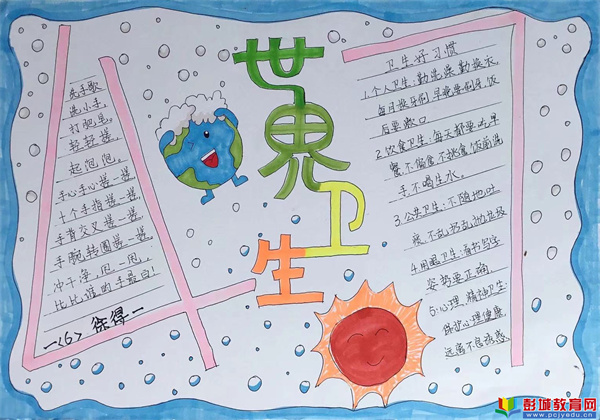 世界卫生
洗手歌
洗小手，
打肥皂，
轻轻搓，
起泡泡，
手心手心搓一搓，
十个手指搓一搓，
手背交叉搓一搓，
手腕转圈搓一搓，
冲干净，甩一甩，
比比谁的手最白！
一(6) 徐得一
卫生好习惯
1.个人卫生：勤洗澡勤换衣，
每月换牙刷，早晚要刷牙，饭
后要漱口
2.饮食卫生：每天都要吃早
餐不偏食不挑食饭前洗
手不喝生水。
3.公共卫生：不随地吐
痰，不乱扔乱放垃圾
4.用眼卫生：看书写字
姿势要正确，
5.心理、精神卫生
保护心理健康
远离不良诱惑
彭城教育网
www.pcjyedu.cn